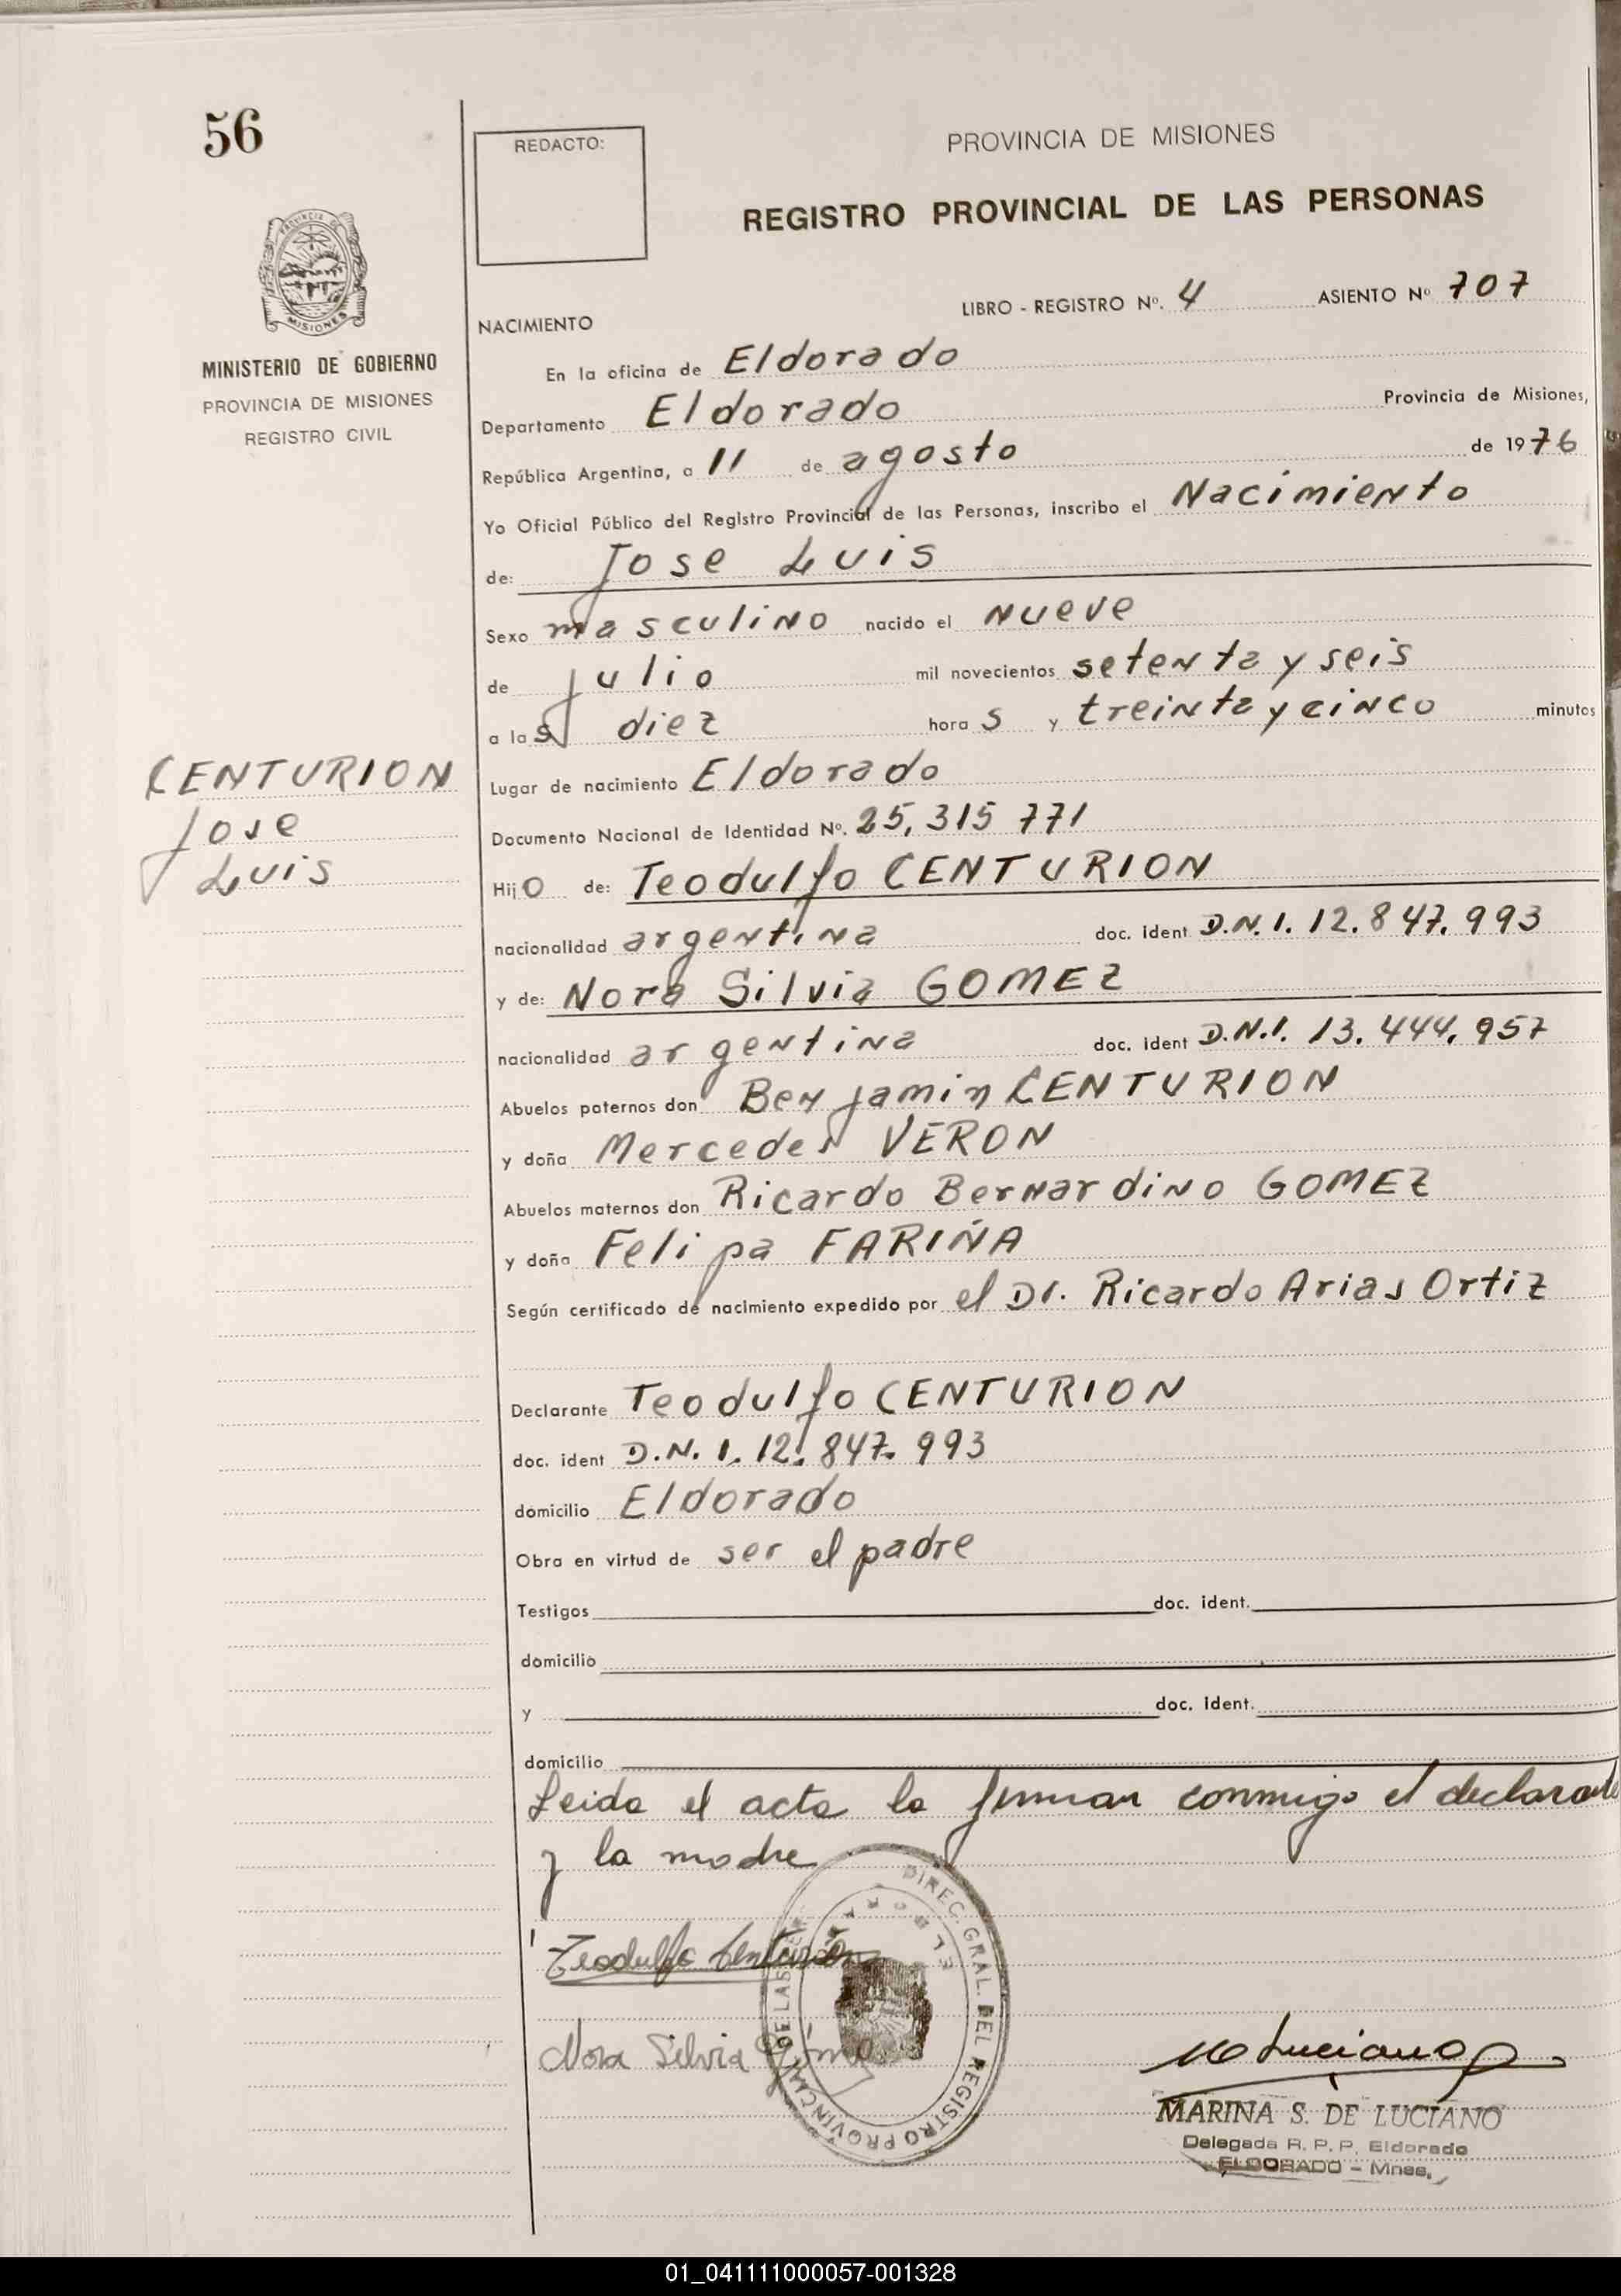 56
REDACTO:
PROVINCIA DE MISIONES
REGISTRO PROVINCIAL DE LAS PERSONAS
PROVINCIA DE
MISIONES
MINISTERIO DE GOBIERNO
PROVINCIA DE MISIONES
REGISTRO CIVIL
LIBRO - REGISTRO Nº. 4 ASIENTO Nº 707
NACIMIENTO
En la oficina de Eldorado
Departamento Eldorado Provincia de Misiones,
República Argentina, a 11 de agosto de 1976
Yo Oficial Público del Registro Provincial de las Personas, inscribo el Nacimiento
de: Jose Luis
Sexo masculino nacido el Nueve
de julio mil novecientos setenta y seis
a las diez horas y treinta y cinco minutos
CENTURION
Jose
Luis
Lugar de nacimiento Eldorado
Documento Nacional de Identidad Nº. 25,315 771
Hijo de: Teodulfo CENTURION
nacionalidad argentina doc. ident D.N.I. 12.847.993
y de: Nora Silvia GOMEZ
nacionalidad argentina doc. ident D.N.I. 13.444.957
Abuelos paternos don Benjamin CENTURION
y doña Mercedes VERON
Abuelos maternos don Ricardo Bernardino GOMEZ
y doña Felipa FARIÑA
Según certificado de nacimiento expedido por el Dr. Ricardo Arias Ortiz
Declarante Teodulfo CENTURION
doc. ident D.N.I. 12.847.993
domicilio Eldorado
Obra en virtud de ser el padre
Testigos doc. ident.
domicilio
y doc. ident.
domicilio
Leida el acta la firman conmigo el declarante
y la madre
DIREC. GRAL. DEL REGISTRO PROVINCIAL DE LAS
Teodulfo Centurión
Nora Silvia Gómez
MARINA S. DE LUCIANO
Delegada R. P. P. Eldorado
ELDORADO - Mnes.
01_041111000057-001328